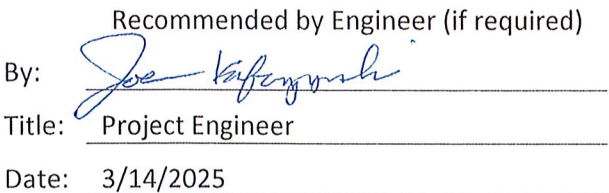 Recommended by Engineer (if required)
By: Joe
Title: Project Engineer
Date: 3/14/2025